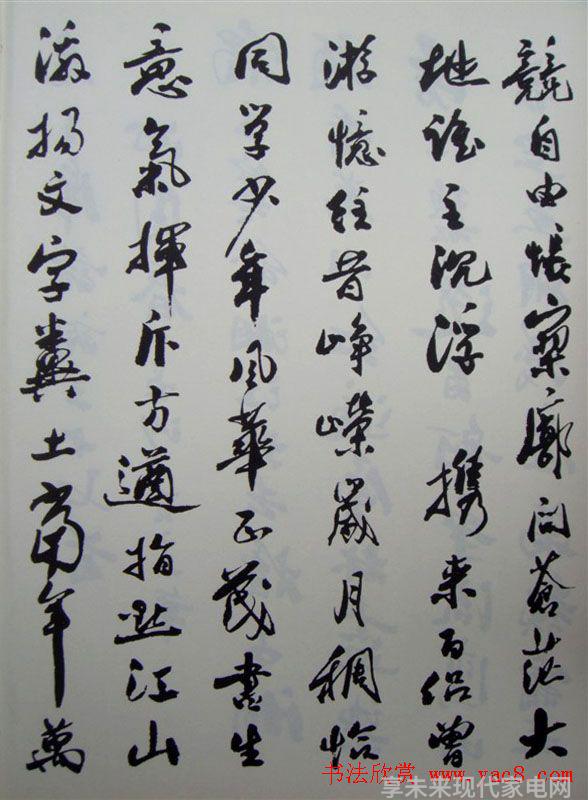 競自由悵寥廓问蒼茫大
地谁主沉浮携来百侣曾
游憶往昔峥嵘歲月稠恰
同学少年风華正茂書生
意氣揮斥方遒指点江山
激揚文字糞土當年萬
书法欣赏 www.yac8.com
享未来现代家电网